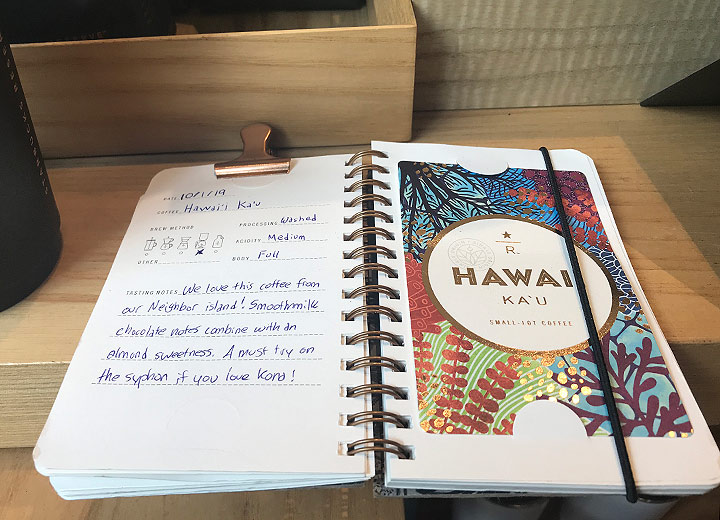 DATE 10/1/19
COFFEE Hawai'i Ka'u
BREW METHOD
PROCESSING Washed
ACIDITY Medium
OTHER
BODY Full
TASTING NOTES We love this coffee from
our Neighbor island! Smooth milk
chocolate notes combine with an
almond sweetness. A must try on
the syphon if you love Kona!
R
HAWAI
KA'U
SMALL-LOT COFFEE